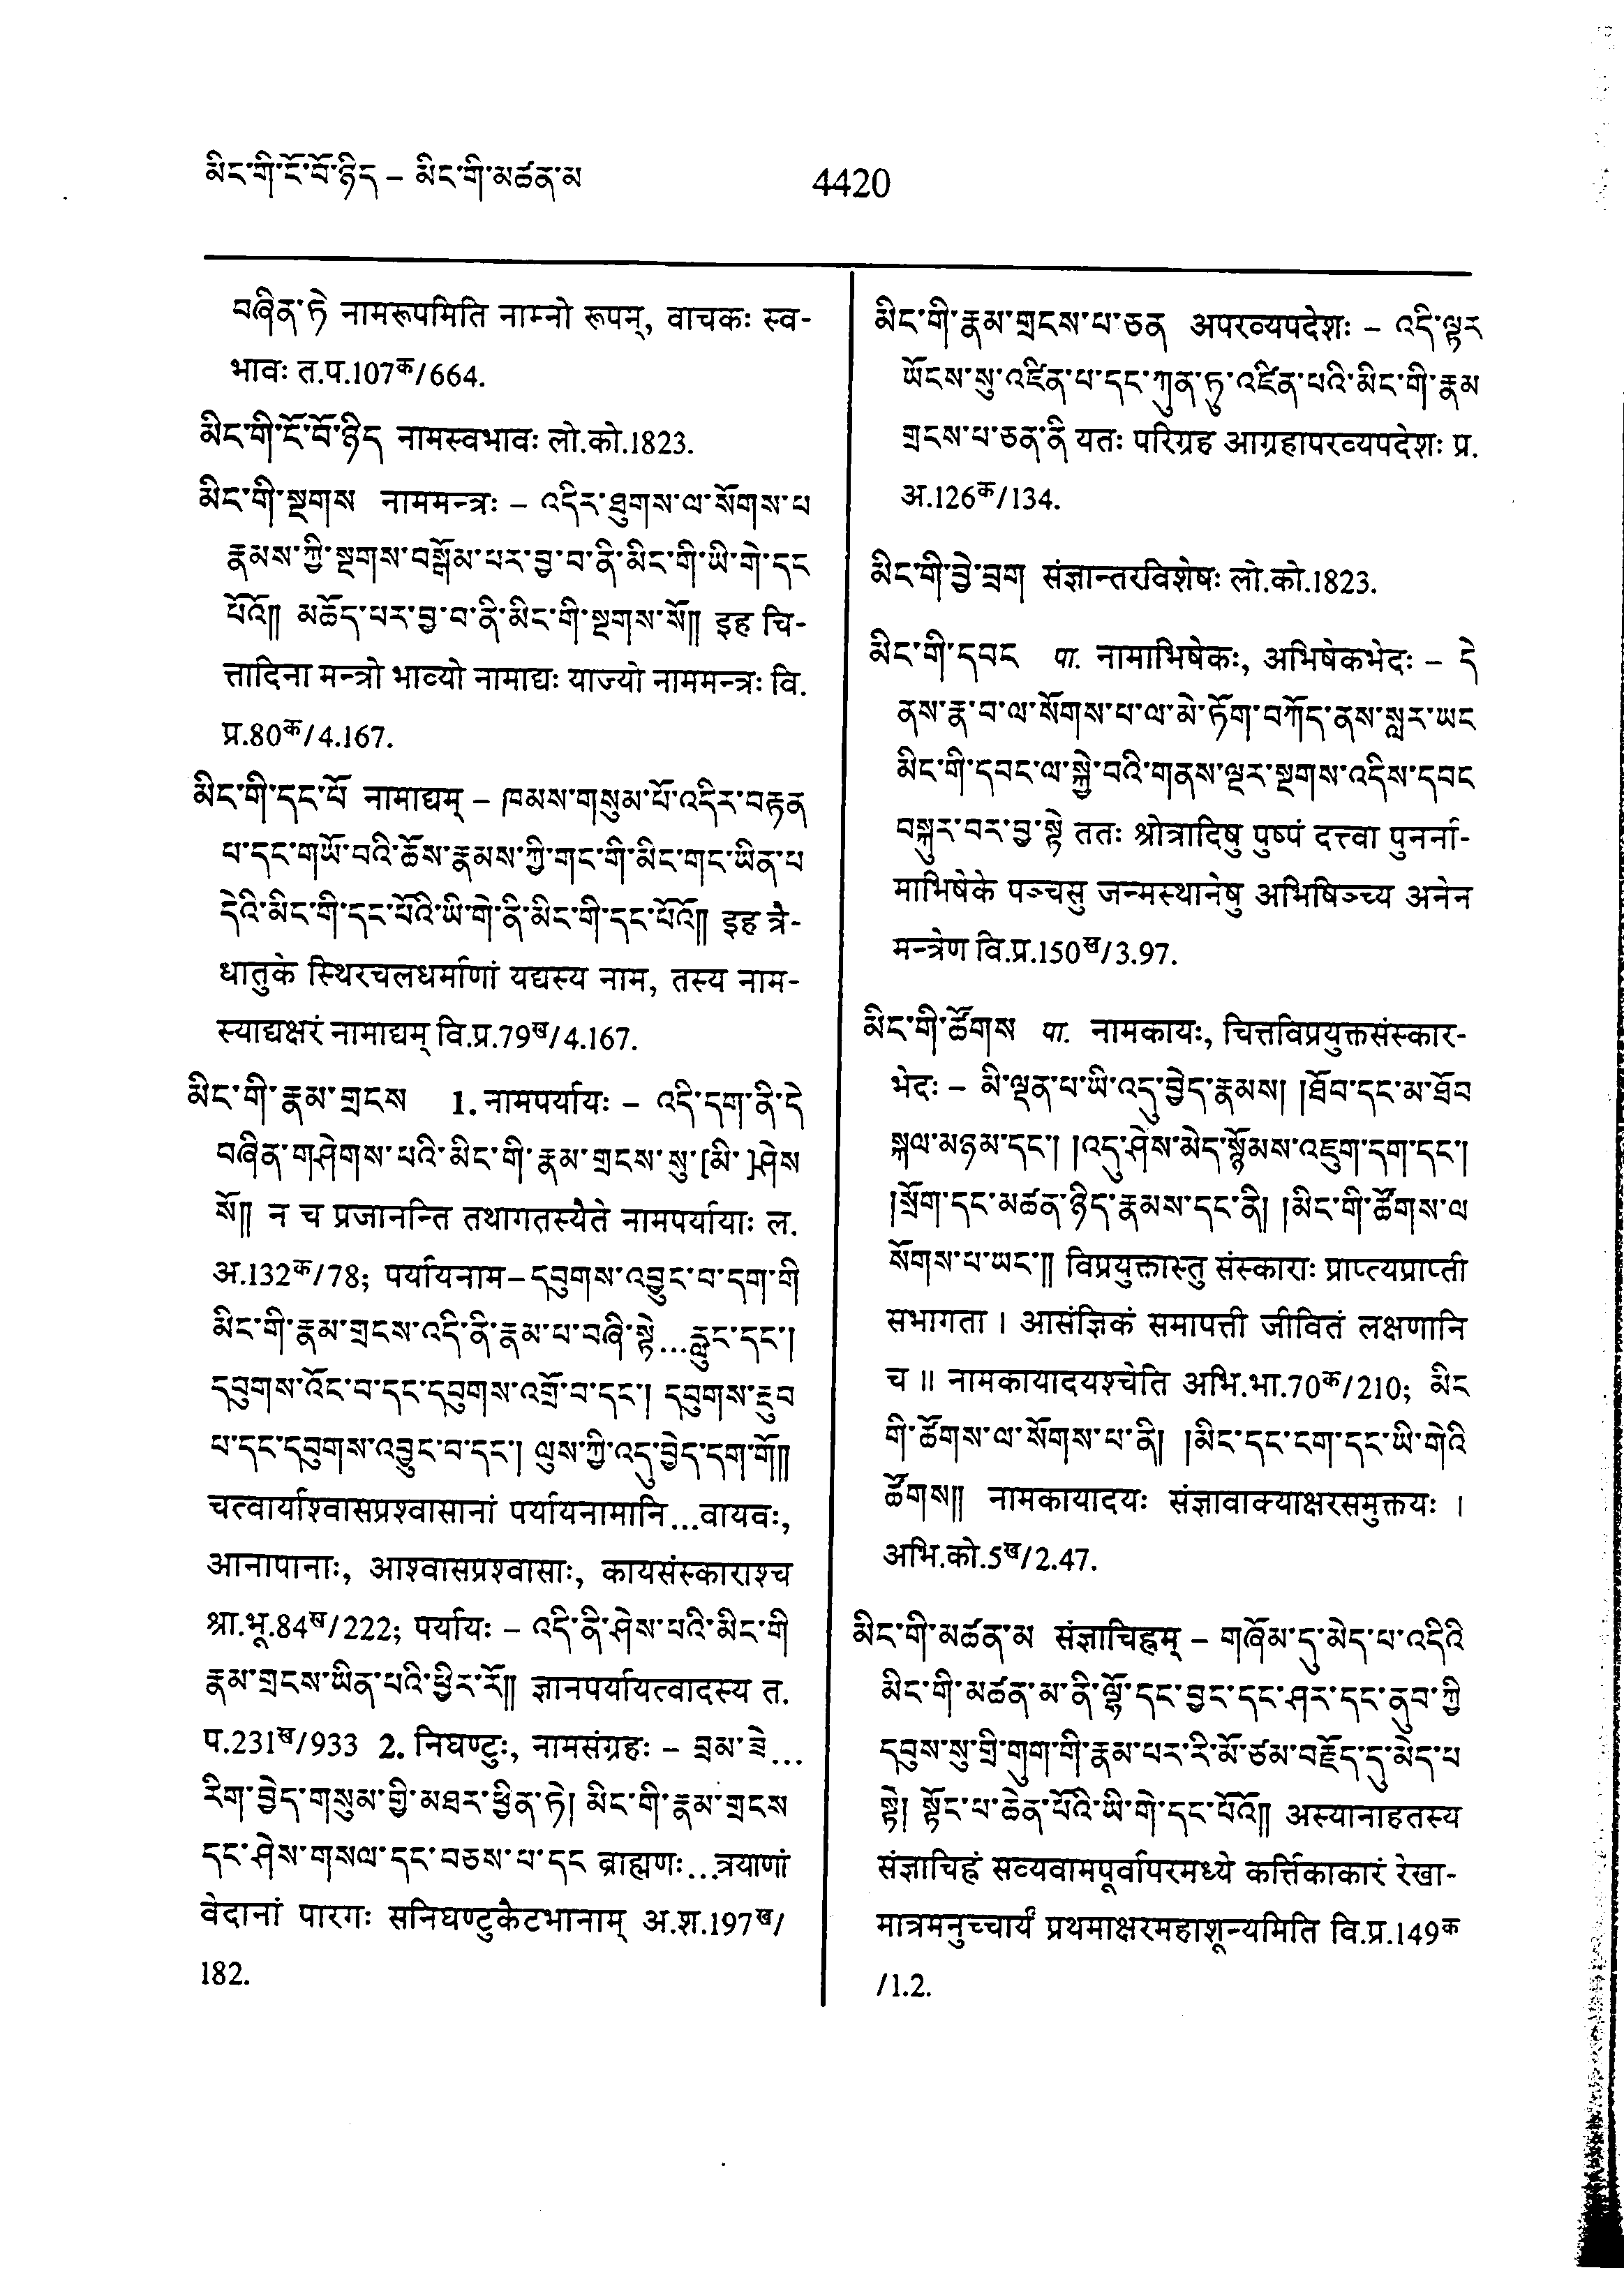 མིང་གི་ངོ་བོ་ཉིད – མིང་གི་མཚན་མ
4420
བཞིན་ཏེ नामरूपमिति नाम्नो रूपन्, वाचकः स्व-
भावः त.प.107क/664.
མིང་གི་ངོ་བོ་ཉིད नामस्वभावः लो.को.1823.
མིང་གི་སྔགས नाममन्त्रः – འདིར་ཐུགས་ལ་སོགས་པ
རྣམས་ཀྱི་སྔགས་བསྒོམ་པར་བྱ་བ་ནི་མིང་གི་ཡི་གེ་དང
པོའོ།། མཆོད་པར་བྱ་བ་ནི་མིང་གི་སྔགས་སོ།། इह चि-
त्तादिना मन्त्रो भाव्यो नामाद्यः याज्यो नाममन्त्रः वि.
प्र.80क/4.167.
མིང་གི་དང་པོ नामाद्यम् – ཁམས་གསུམ་པོ་འདིར་བརྟན
པ་དང་གཡོ་བའི་ཆོས་རྣམས་ཀྱི་གང་གི་མིང་གང་ཡིན་པ
དེའི་མིང་གི་དང་པོའི་ཡི་གེ་ནི་མིང་གི་དང་པོའོ།། इह त्रै-
धातुके स्थिरचलधर्माणां यद्यस्य नाम, तस्य नाम-
स्याद्यक्षरं नामाद्यम् वि.प्र.79ख/4.167.
མིང་གི་རྣམ་གྲངས 1. नामपर्यायः – འདི་དག་ནི་དེ
བཞིན་གཤེགས་པའི་མིང་གི་རྣམ་གྲངས་སུ་[མི་]ཤེས
སོ།། न च प्रजानन्ति तथागतस्यैते नामपर्यायाः ल.
अ.132क/78; पर्यायनाम–དབུགས་འབྱུང་བ་དག་གི
མིང་གི་རྣམ་གྲངས་འདི་ནི་རྣམ་པ་བཞི་སྟེ...རླུང་དང་།
དབུགས་འོང་བ་དང་དབུགས་འགྲོ་བ་དང་། དབུགས་རྔུབ
པ་དང་དབུགས་འབྱུང་བ་དང་། ལུས་ཀྱི་འདུ་བྱེད་དག་གོ།།
चत्वार्याश्वासप्रश्वासानां पर्यायनामानि...वायवः,
आनापानाः, आश्वासप्रश्वासाः, कायसंस्काराश्च
श्रा.भू.84ख/222; पर्यायः – འདི་ནི་ཤེས་པའི་མིང་གི
རྣམ་གྲངས་ཡིན་པའི་ཕྱིར་རོ།། ज्ञानपर्यायत्वादस्य त.
प.231ख/933 2. निघण्टुः, नामसंग्रहः – བྲམ་ཟེ...
རིག་བྱེད་གསུམ་གྱི་མཐར་ཕྱིན་ཏེ། མིང་གི་རྣམ་གྲངས
དང་ཤེས་གསལ་དང་བཅས་པ་དང ब्राह्मणः...त्रयाणां
वेदानां पारगः सनिघण्टुकैटभानाम् अ.श.197ख/
182.
མིང་གི་རྣམ་གྲངས་པ་ཅན अपरव्यपदेशः – འདི་ལྟར
ཡོངས་སུ་འཛིན་པ་དང་ཀུན་ཏུ་འཛིན་པའི་མིང་གི་རྣམ
གྲངས་པ་ཅན་ནི यतः परिग्रह आग्रहापरव्यपदेशः प्र.
अ.126क/134.
མིང་གི་བྱེ་བྲག संज्ञान्तरविशेषः लो.को.1823.
མིང་གི་དབང पा. नामाभिषेकः, अभिषेकभेदः – དེ
ནས་རྣ་བ་ལ་སོགས་པ་ལ་མེ་ཏོག་བཀོད་ནས་སླར་ཡང
མིང་གི་དབང་ལ་སྐྱེ་བའི་གནས་ལྔར་སྔགས་འདིས་དབང
བསྐུར་བར་བྱ་སྟེ ततः श्रोत्रादिषु पुष्पं दत्त्वा पुनर्ना-
माभिषेके पञ्चसु जन्मस्थानेषु अभिषिञ्च्य अनेन
मन्त्रेण वि.प्र.150ख/3.97.
མིང་གི་ཚོགས पा. नामकायः, चित्तविप्रयुक्तसंस्कार-
भेदः – མི་ལྡན་པ་ཡི་འདུ་བྱེད་རྣམས། །ཐོབ་དང་མ་ཐོབ
སྐལ་མཉམ་དང་། །འདུ་ཤེས་མེད་སྙོམས་འཇུག་དག་དང་།
།སྲོག་དང་མཚན་ཉིད་རྣམས་དང་ནི། །མིང་གི་ཚོགས་ལ
སོགས་པ་ཡང་།། विप्रयुक्तास्तु संस्काराः प्राप्त्यप्राप्ती
सभागता । आसंज्ञिकं समापत्ती जीवितं लक्षणानि
च ॥ नामकायादयश्चेति अभि.भा.70क/210; མིང
གི་ཚོགས་ལ་སོགས་པ་ནི། །མིང་དང་ངག་དང་ཡི་གེའི
ཚོགས།། नामकायादयः संज्ञावाक्याक्षरसमुक्तयः ।
अभि.को.5ख/2.47.
མིང་གི་མཚན་མ संज्ञाचिह्नम् – གཞོམ་དུ་མེད་པ་འདིའི
མིང་གི་མཚན་མ་ནི་ལྷོ་དང་བྱང་དང་ཤར་དང་ནུབ་ཀྱི
དབུས་སུ་གྲི་གུག་གི་རྣམ་པར་རི་མོ་ཙམ་བརྗོད་དུ་མེད་པ
སྟེ། སྟོང་པ་ཆེན་པོའི་ཡི་གེ་དང་པོའོ།། अस्यानाहतस्य
संज्ञाचिह्नं सव्यवामपूर्वापरमध्ये कर्त्तिकाकारं रेखा-
मात्रमनुच्चार्यं प्रथमाक्षरमहाशून्यमिति वि.प्र.149क
/1.2.